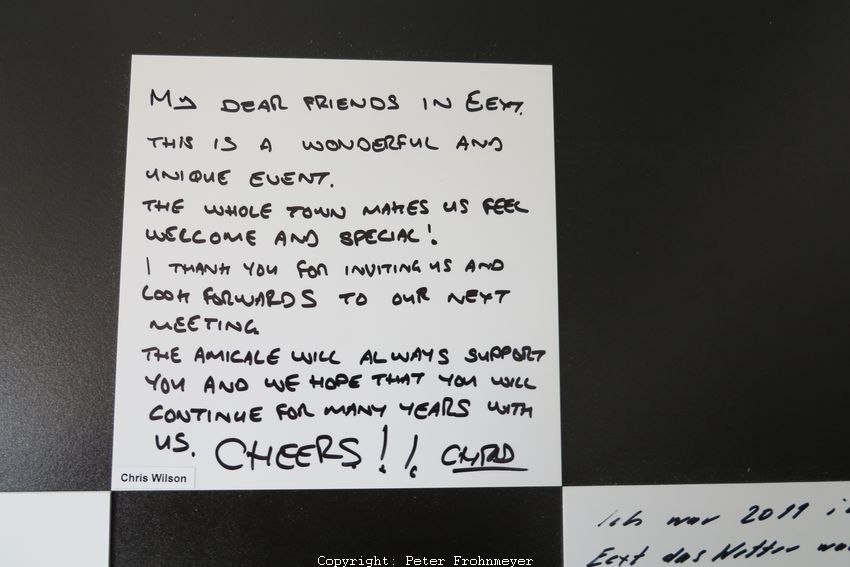 MY DEAR FRIENDS IN EEXT.
THIS IS A WONDERFUL AND
UNIQUE EVENT.
THE WHOLE TOWN MAKES US FEEL
WELCOME AND SPECIAL!
I THANK YOU FOR INVITING US AND
LOOK FORWARDS TO OUR NEXT
MEETING.
THE AMICALE WILL ALWAYS SUPPORT
YOU AND WE HOPE THAT YOU WILL
CONTINUE FOR MANY YEARS WITH
US. CHEERS!!
Chris Wilson
Ich war 2011
Eext das Wetter war
Copyright: Peter Frohnmeyer